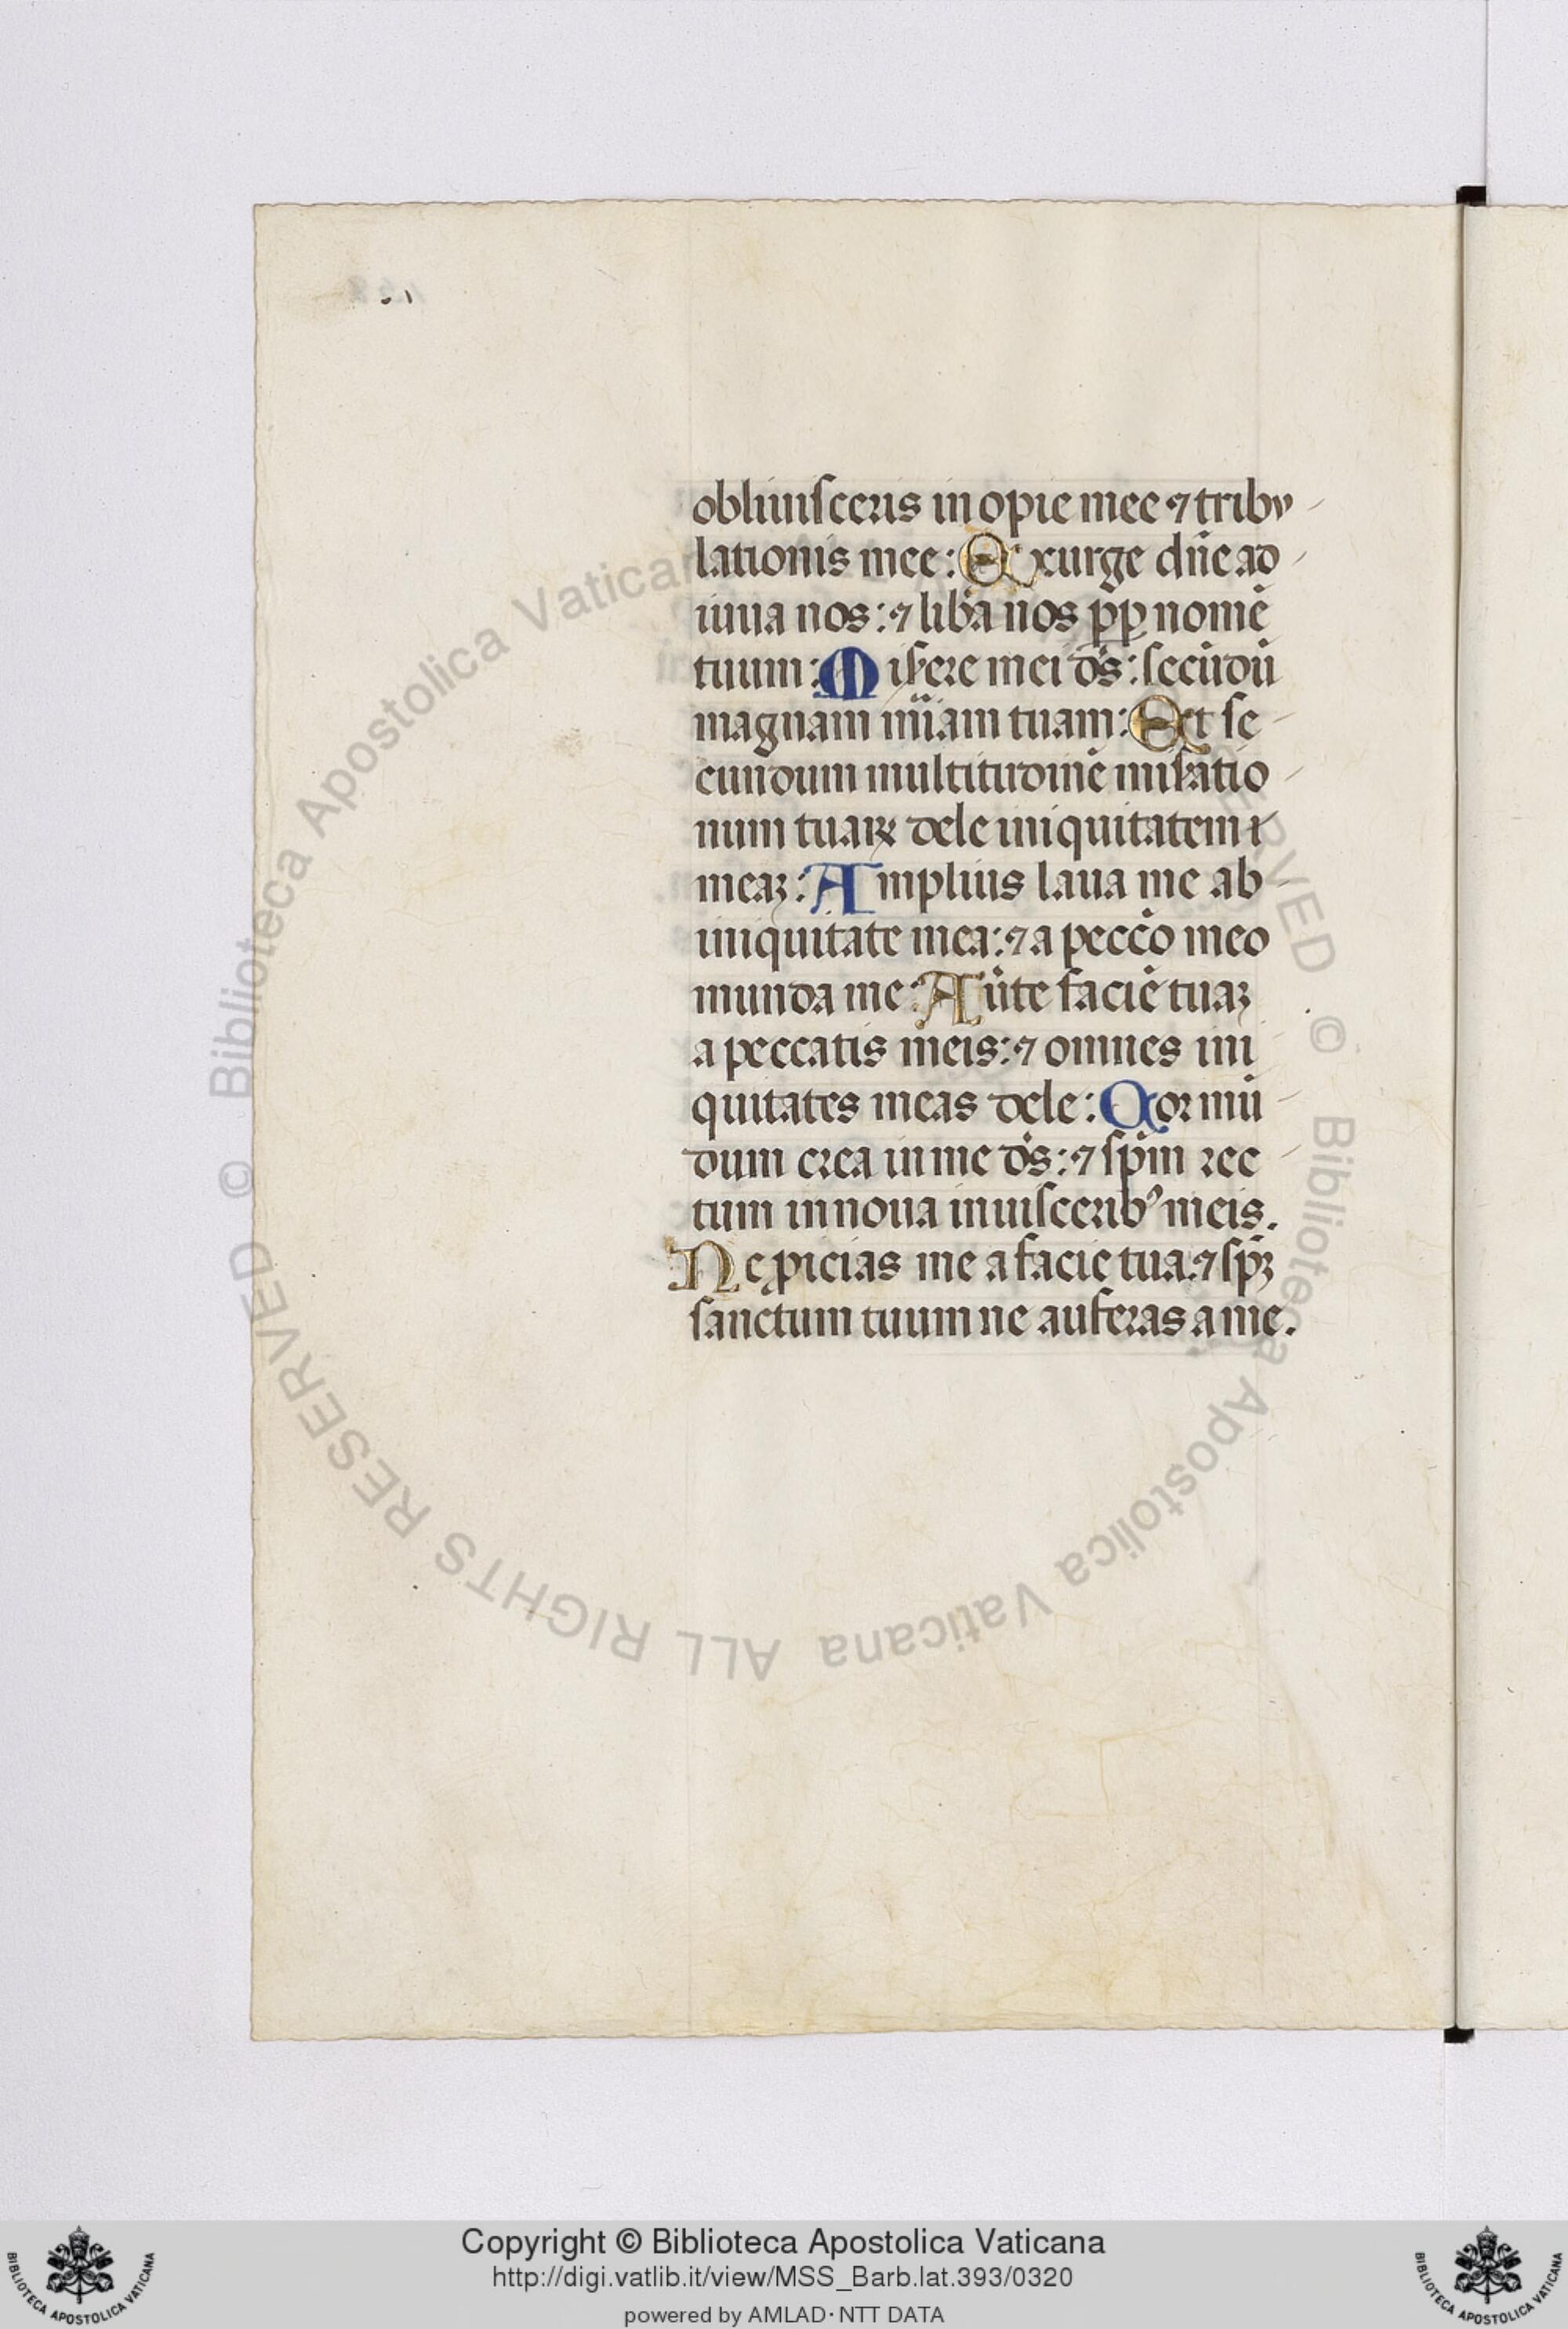 obliuiſceris inopie mee ⁊ tribu
lationis mee: Exurge dn̄e ad
iuua nos: ⁊ lib̄a nos ꝓp̱ nomē
tuum: Miſere mei ds̄: ſecūdū
magnam mīam tuam: Et ſe
cundum multitudinē miſatio
num tuaꝝ dele iniquitatem
meaꝫ: Amplius laua me ab
iniquitate mea: ⁊ a pecc̄o meo
munda me: Au̅te faciē tuaꝫ
a peccatis meis: ⁊ omnes ini
quitates meas dele: Cor mū
dum crea in me ds̄: ⁊ ſpm̄ rec
tum innoua in uiſceribꝰ meis.
Ne ꝓicias me a facie tua: ⁊ ſpꝫ̄
ſanctum tuum ne auferas a me.
© Biblioteca Apostolica Vaticana ALL RIGHTS RESERVED © Biblioteca Apostolica Vatican
RVED
Copyright © Biblioteca Apostolica Vaticana
http://digi.vatlib.it/view/MSS_Barb.lat.393/0320
powered by AMLAD·NTT DATA
BIBLIOTECA APOSTOLICA VATICANA
BIBLIOTECA APOSTOLICA VATICANA